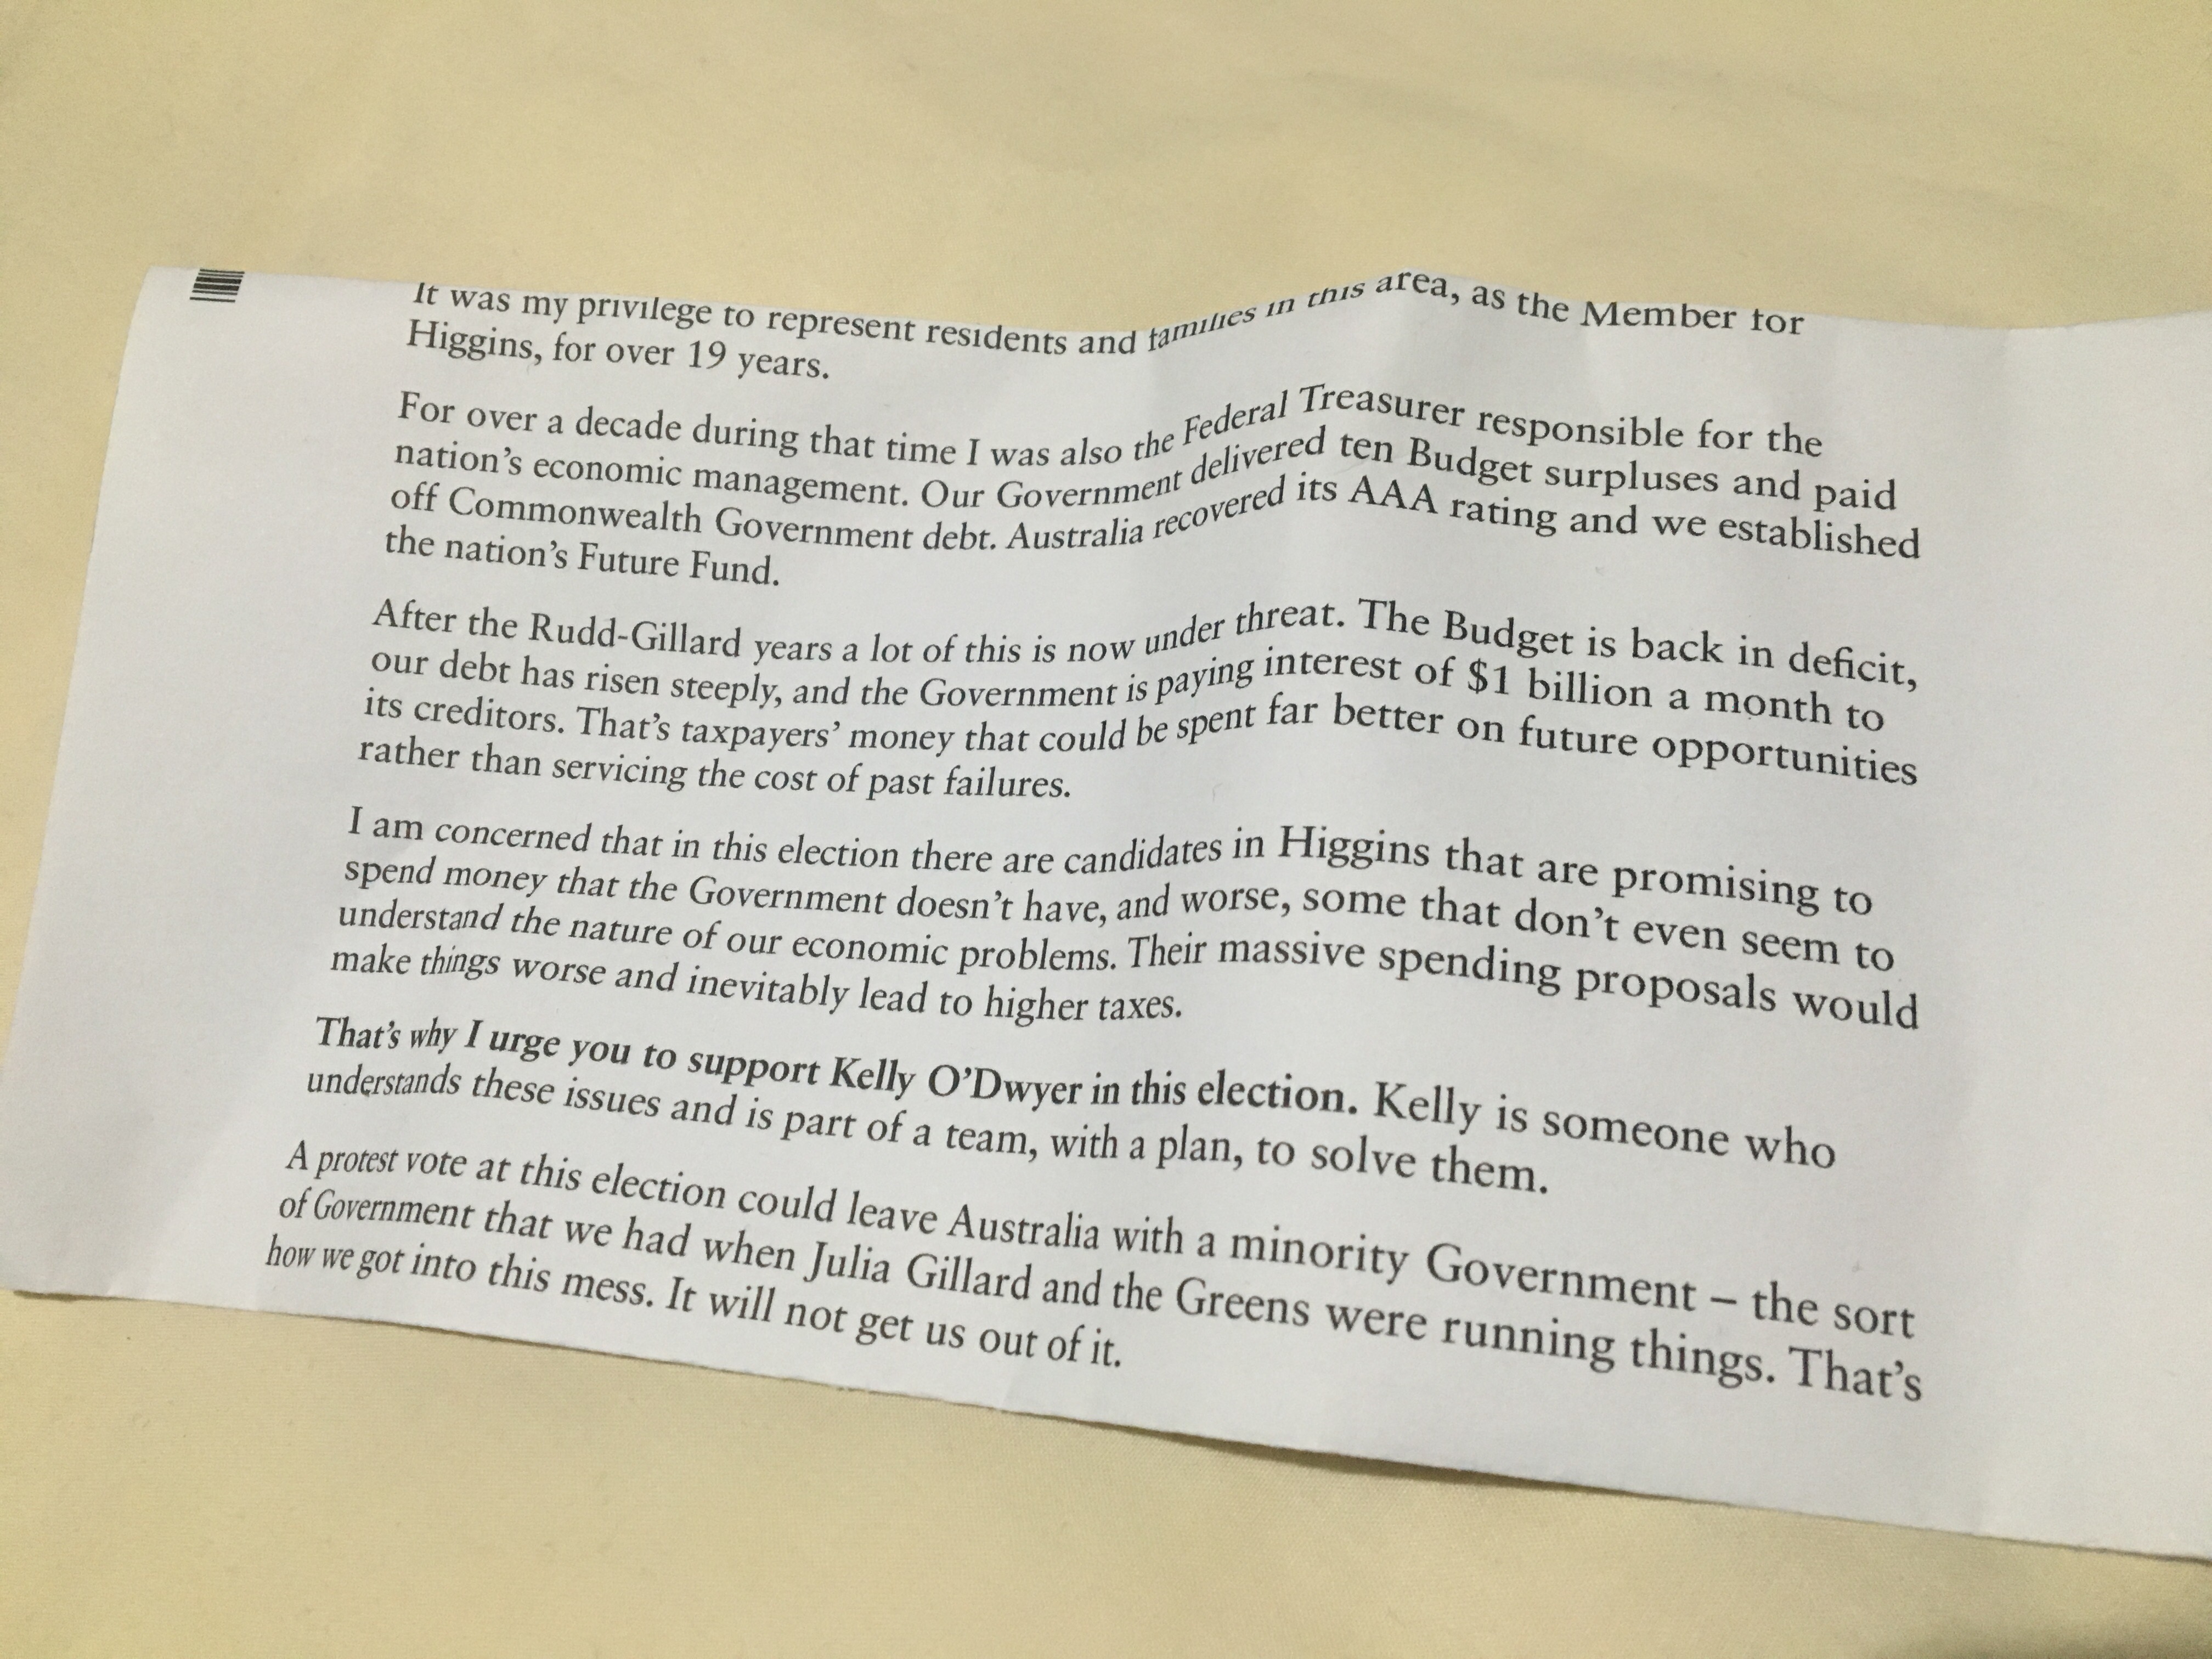 It was my privilege to represent residents and families in this area, as the Member for
Higgins, for over 19 years.
For over a decade during that time I was also the Federal Treasurer responsible for the
nation's economic management. Our Government delivered ten Budget surpluses and paid
off Commonwealth Government debt. Australia recovered its AAA rating and we established
the nation's Future Fund.
After the Rudd-Gillard years a lot of this is now under threat. The Budget is back in deficit,
our debt has risen steeply, and the Government is paying interest of $1 billion a month to
its creditors. That's taxpayers' money that could be spent far better on future opportunities
rather than servicing the cost of past failures.
I am concerned that in this election there are candidates in Higgins that are promising to
spend money that the Government doesn't have, and worse, some that don't even seem to
understand the nature of our economic problems. Their massive spending proposals would
make things worse and inevitably lead to higher taxes.
That's why I urge you to support Kelly O'Dwyer in this election. Kelly is someone who
understands these issues and is part of a team, with a plan, to solve them.
A protest vote at this election could leave Australia with a minority Government – the sort
of Government that we had when Julia Gillard and the Greens were running things. That's
how we got into this mess. It will not get us out of it.